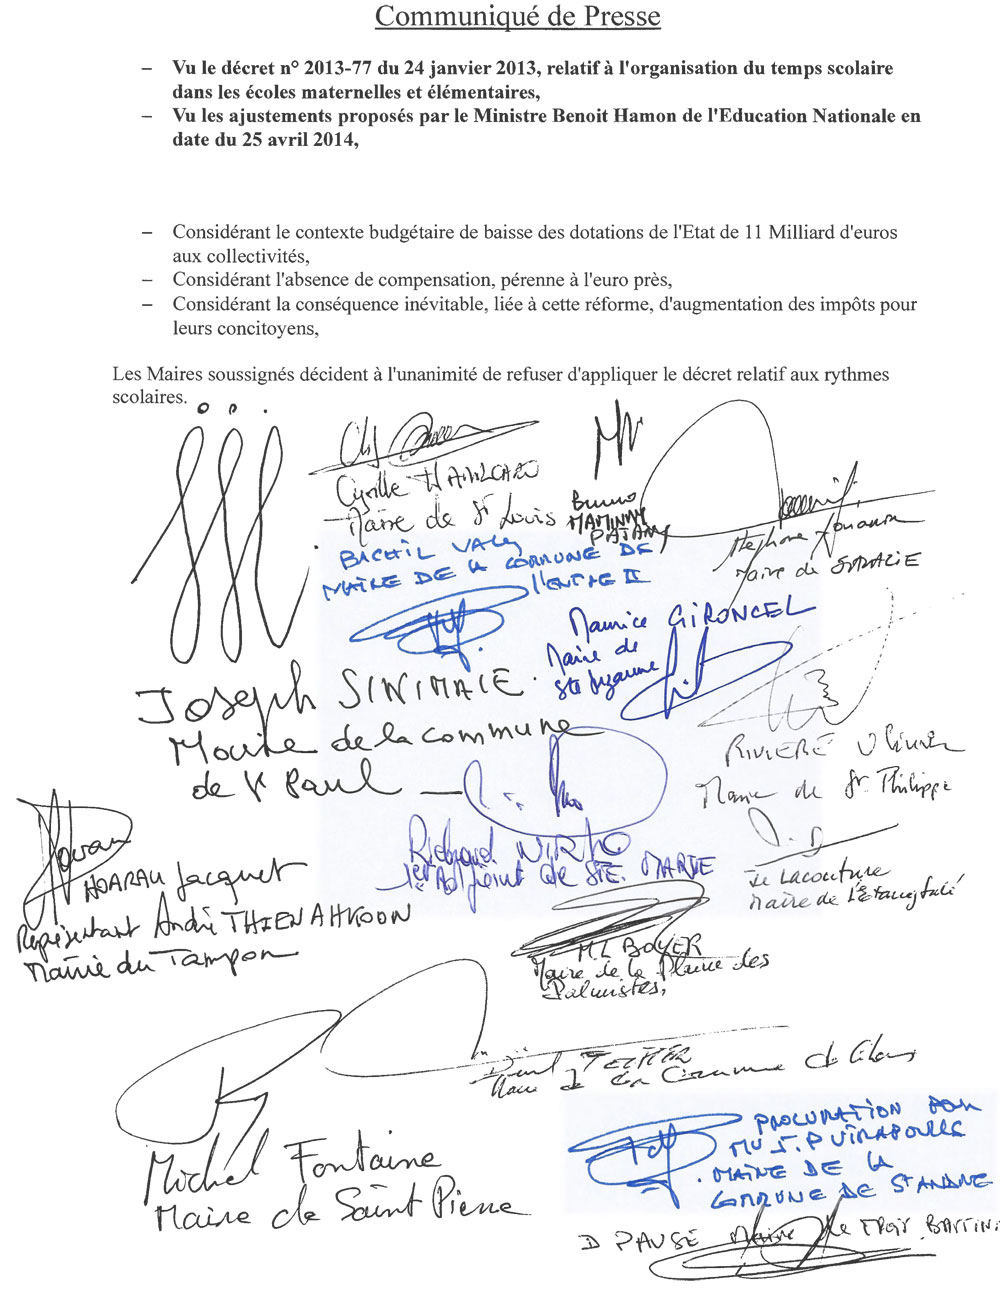 Communiqué de Presse
– Vu le décret n° 2013-77 du 24 janvier 2013, relatif à l'organisation du temps scolaire
dans les écoles maternelles et élémentaires,
– Vu les ajustements proposés par le Ministre Benoit Hamon de l'Education Nationale en
date du 25 avril 2014,
– Considérant le contexte budgétaire de baisse des dotations de l'Etat de 11 Milliard d'euros
aux collectivités,
– Considérant l'absence de compensation, pérenne à l'euro près,
– Considérant la conséquence inévitable, liée à cette réforme, d'augmentation des impôts pour
leurs concitoyens,
Les Maires soussignés décident à l'unanimité de refuser d'appliquer le décret relatif aux rythmes
scolaires.
Cyrille HAMILCARO
Maire de St Louis
Bruno
MAMINDY
PAJANY
Maire de
BACHIL VALY
MAIRE DE LA COMMUNE DE
L'ENTRE II
Maurice GIRONCEL
Maire de
Ste Suzanne
Joseph SINIMALE
Maire de la commune
de St Paul
RIVIERE Olivier
Maire de St Philippe
Richard NIRLO
1er Adjoint de STE. MARIE
JC Lacouture
Maire de l'Etang Salé
HOARAU Jacquet
Représentant André THIEN AH KOON
Mairie du Tampon
ML BOYER
Maire de la Plaine des
Palmistes,
Maire de la Commune de
Michel Fontaine
Maire de Saint Pierre
PROCURATION POUR
J.P VIRAPOULLE
MAIRE DE LA
COMMUNE DE ST ANDRE
D PAUSE Maire de TROIS BASSINS